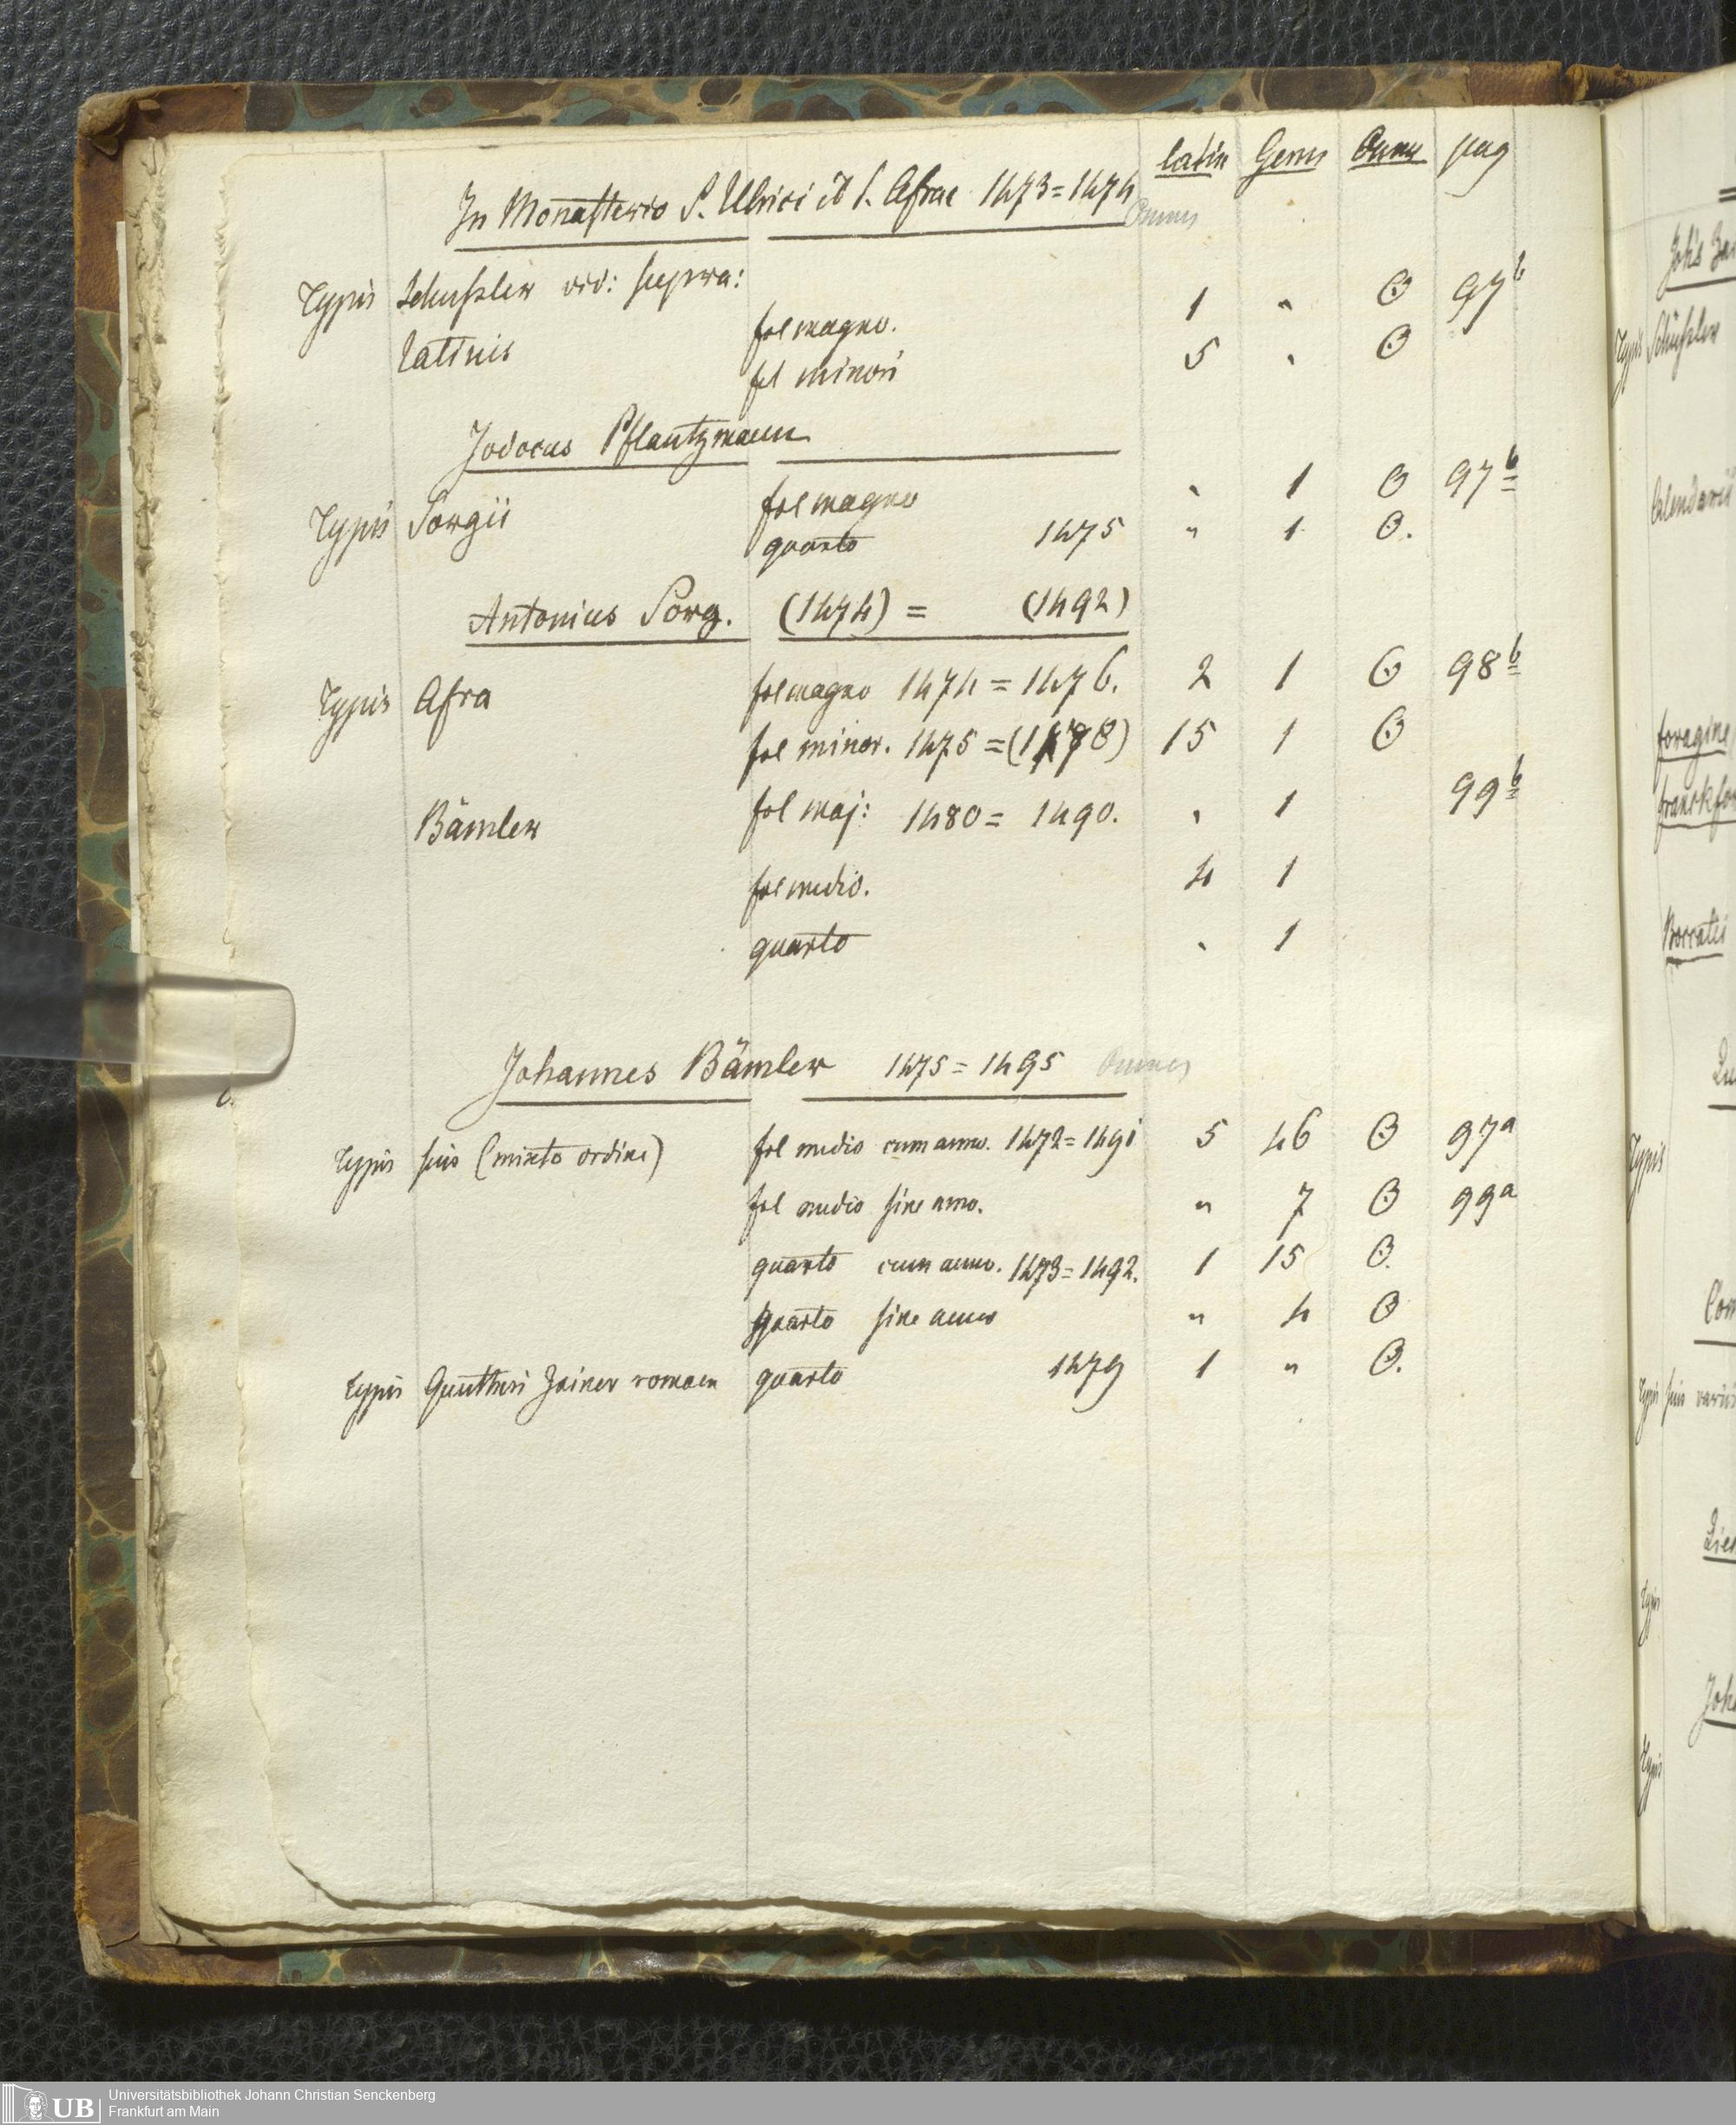 latin Germ Omnes pag
In Monasterio S. Ulrici et S. Afrae 1473=1474 Omnes
Typis Schuszler vid: supra: fol magno. 1 " O 97b
Latinis fol minori 5 " O
Jodocus Pflantzmann
Typis Sorgii fol magno " 1 O 97b
quarto 1475 " 1 O.
Antonius Sorg. (1474) = (1492)
Typis Afra fol magno 1474=1476. 2 1 O 98b
fol minor. 1475=(1478) 15 1 O
Bämler fol maj: 1480= 1490. " 1 99b
fol medio. 4 1
quarto " 1
Johannes Bämler 1475=1495 Omnes
Typis suis (mixto ordine) fol medio cum anno. 1472=1491 5 46 O 97a
fol medio sine anno. " 7 O 99a
quarto cum anno. 1473=1492. 1 15 O.
quarto sine anno " 4 O
typis Guntheri Zainer roman quarto 1479 1 " O.
Typis Schüszler
Typis
Typis
Typis
UB Universitätsbibliothek Johann Christian Senckenberg
Frankfurt am Main